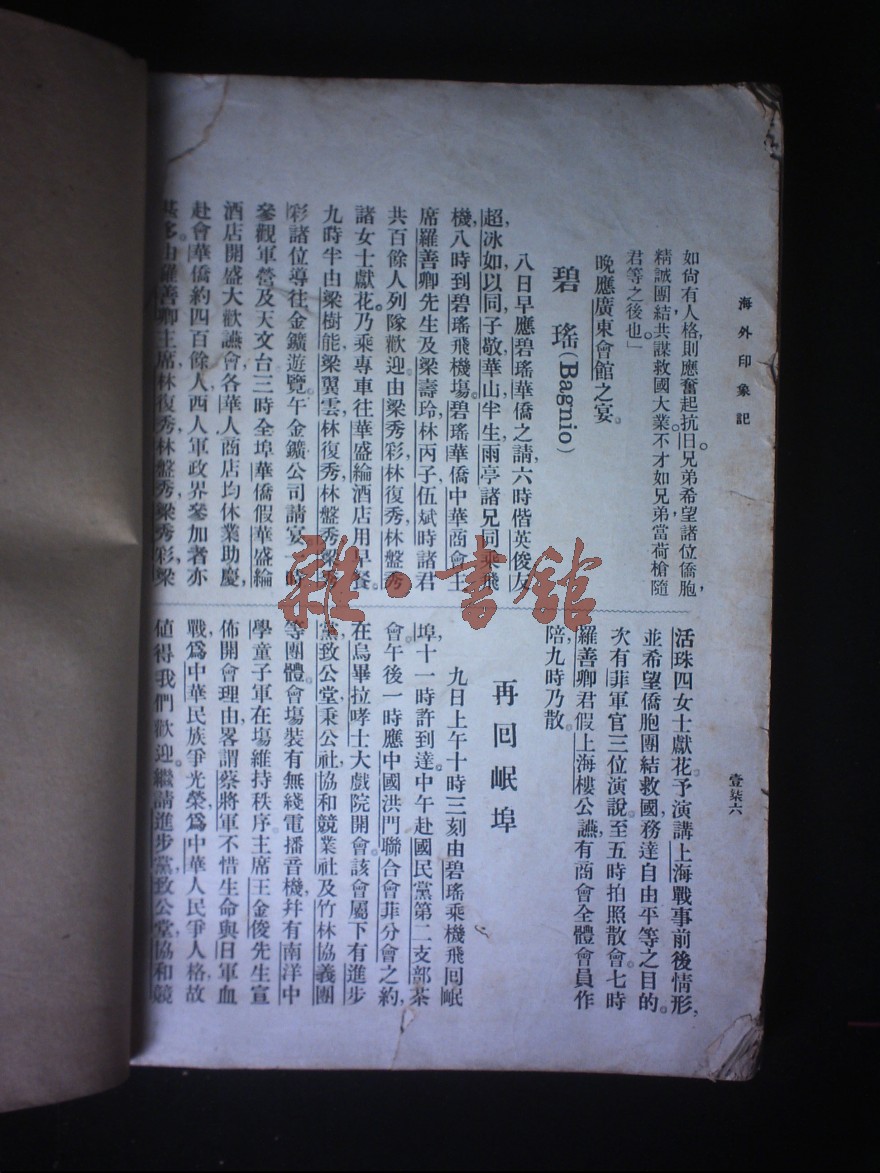 海外印象記
壹柒六
如尙有人格，則應奮起抗日。兄弟希望諸位僑胞，
精誠團結，共謀救國大業。不才如兄弟，當荷槍隨
君等之後也。」
晚應廣東會館之宴。
碧瑤（Bagnio）
八日早應碧瑤華僑之請，六時偕英俊，友
超，冰如，以同，子敬，華山，半生，雨亭諸兄同乘飛
機，八時到碧瑤飛機塲。碧瑤華僑中華商會主
席羅善卿先生及梁壽玲，林丙子，伍斌時諸君
共百餘人列隊歡迎。由梁秀彩，林復秀，林盤秀
諸女士獻花。乃乘專車往華盛綸酒店用早餐。
九時半由梁樹能，梁翼雲，林復秀，林盤秀，梁秀
彩諸位導往金鑛遊覽。午金鑛公司請宴。一時
參觀軍營及天文台。三時全埠華僑假華盛綸
酒店開盛大歡讌會，各華人商店均休業助慶
赴會，華僑約四百餘人，西人軍政界參加者亦
甚多。由羅善卿主席，林復秀，林盤秀，梁秀彩，梁
活珠四女士獻花。予演講上海戰事前後情形，
並希望僑胞團結救國，務達自由平等之目的。
次有菲軍官三位演說。至五時拍照散會。七時
羅善卿君假上海樓公讌，有商會全體會員作
陪，九時乃散。
再回岷埠
九日上午十時三刻由碧瑤乘機飛回岷
埠，十一時許到達。中午赴國民黨第二支部茶
會。午後一時應中國洪門聯合會菲分會之約，
在烏畢拉哮士大戲院開會。該會屬下有進步
黨，致公堂，秉公社，協和競業社及竹林協義團
等團體。會塲裝有無綫電播音機，并有南洋中
學童子軍在塲維持秩序。主席王金俊先生宣
佈開會理由，畧謂蔡將軍不惜生命與日軍血
戰，爲中華民族爭光榮，爲中華人民爭人格，故
値得我們歡迎。繼請進步黨，致公堂，協和競